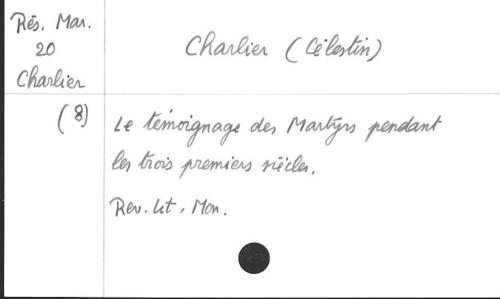 Rés. Mar.
20
Charlier
Charlier (Célestin)
(8)
Le témoignage des Martyrs pendant
les trois premiers siècles.
Rev. Lit. Mon.